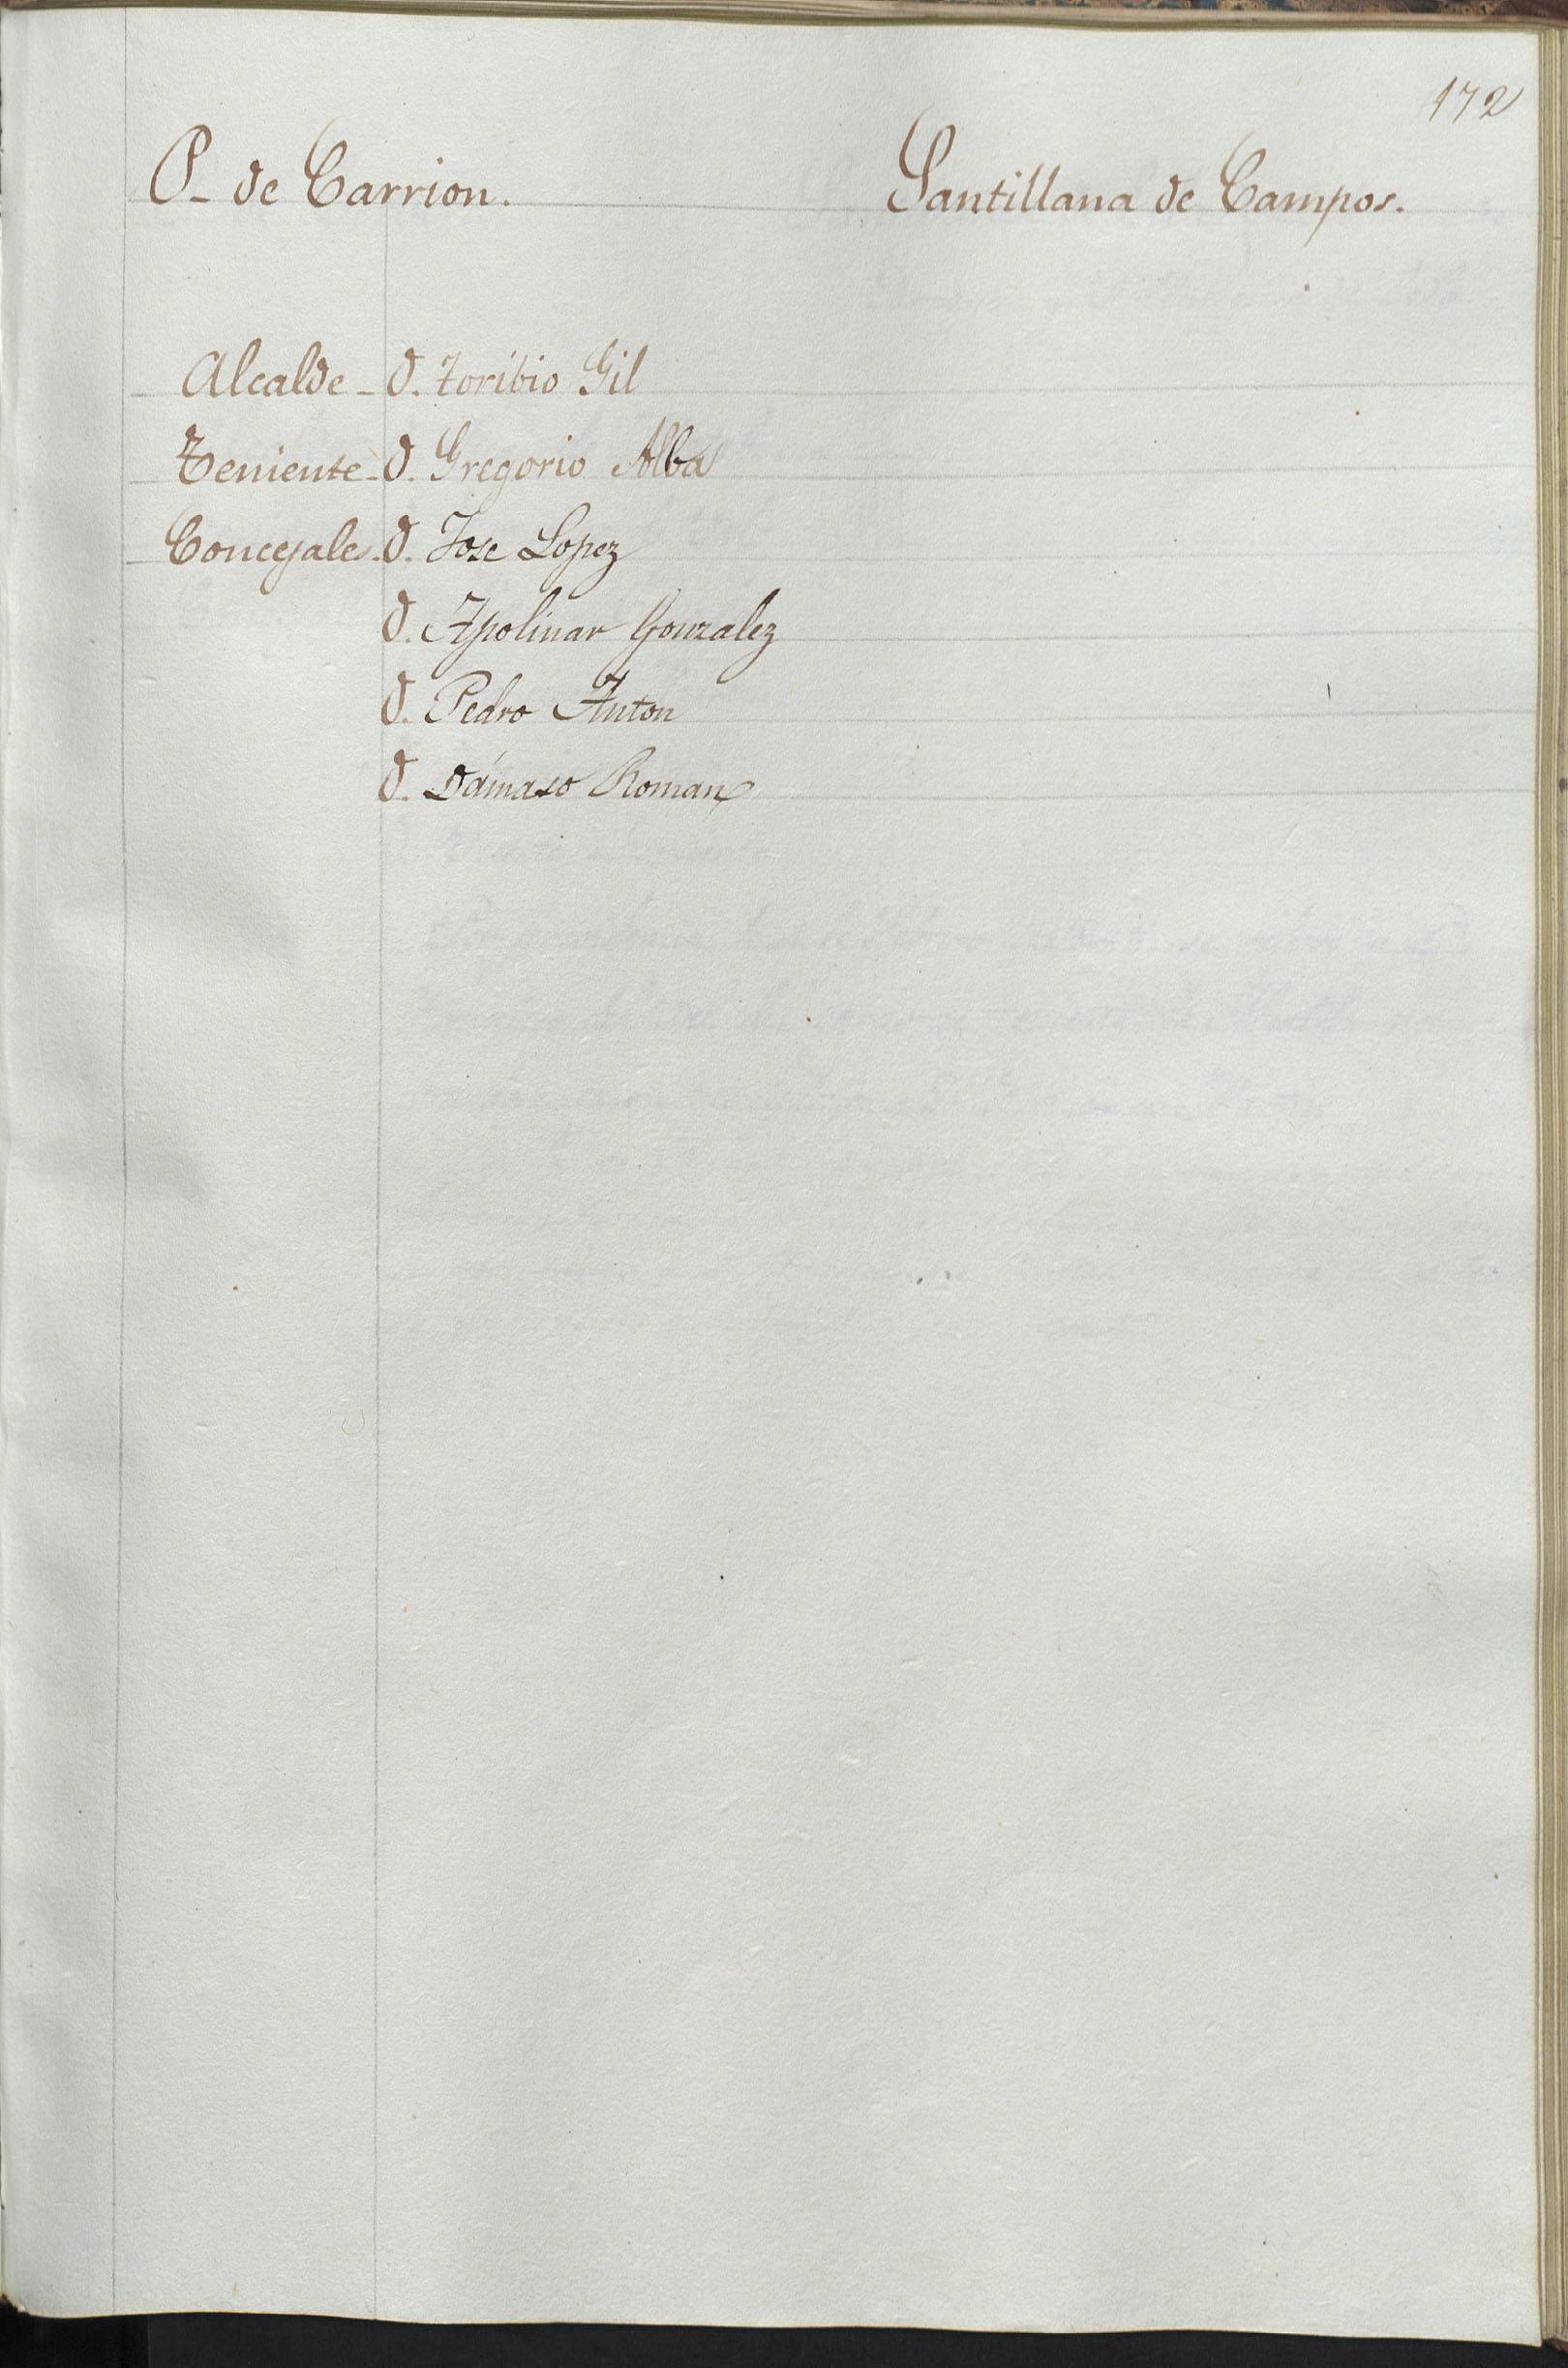 172
P- de Carrion. Santillana de Campos.
Alcalde - D. Toribio Gil
Teniente - D. Gregorio Alba
Concejales. D. Jose Lopez
D. Apolinar Gonzalez
D. Pedro Anton
D. Dámaso Roman